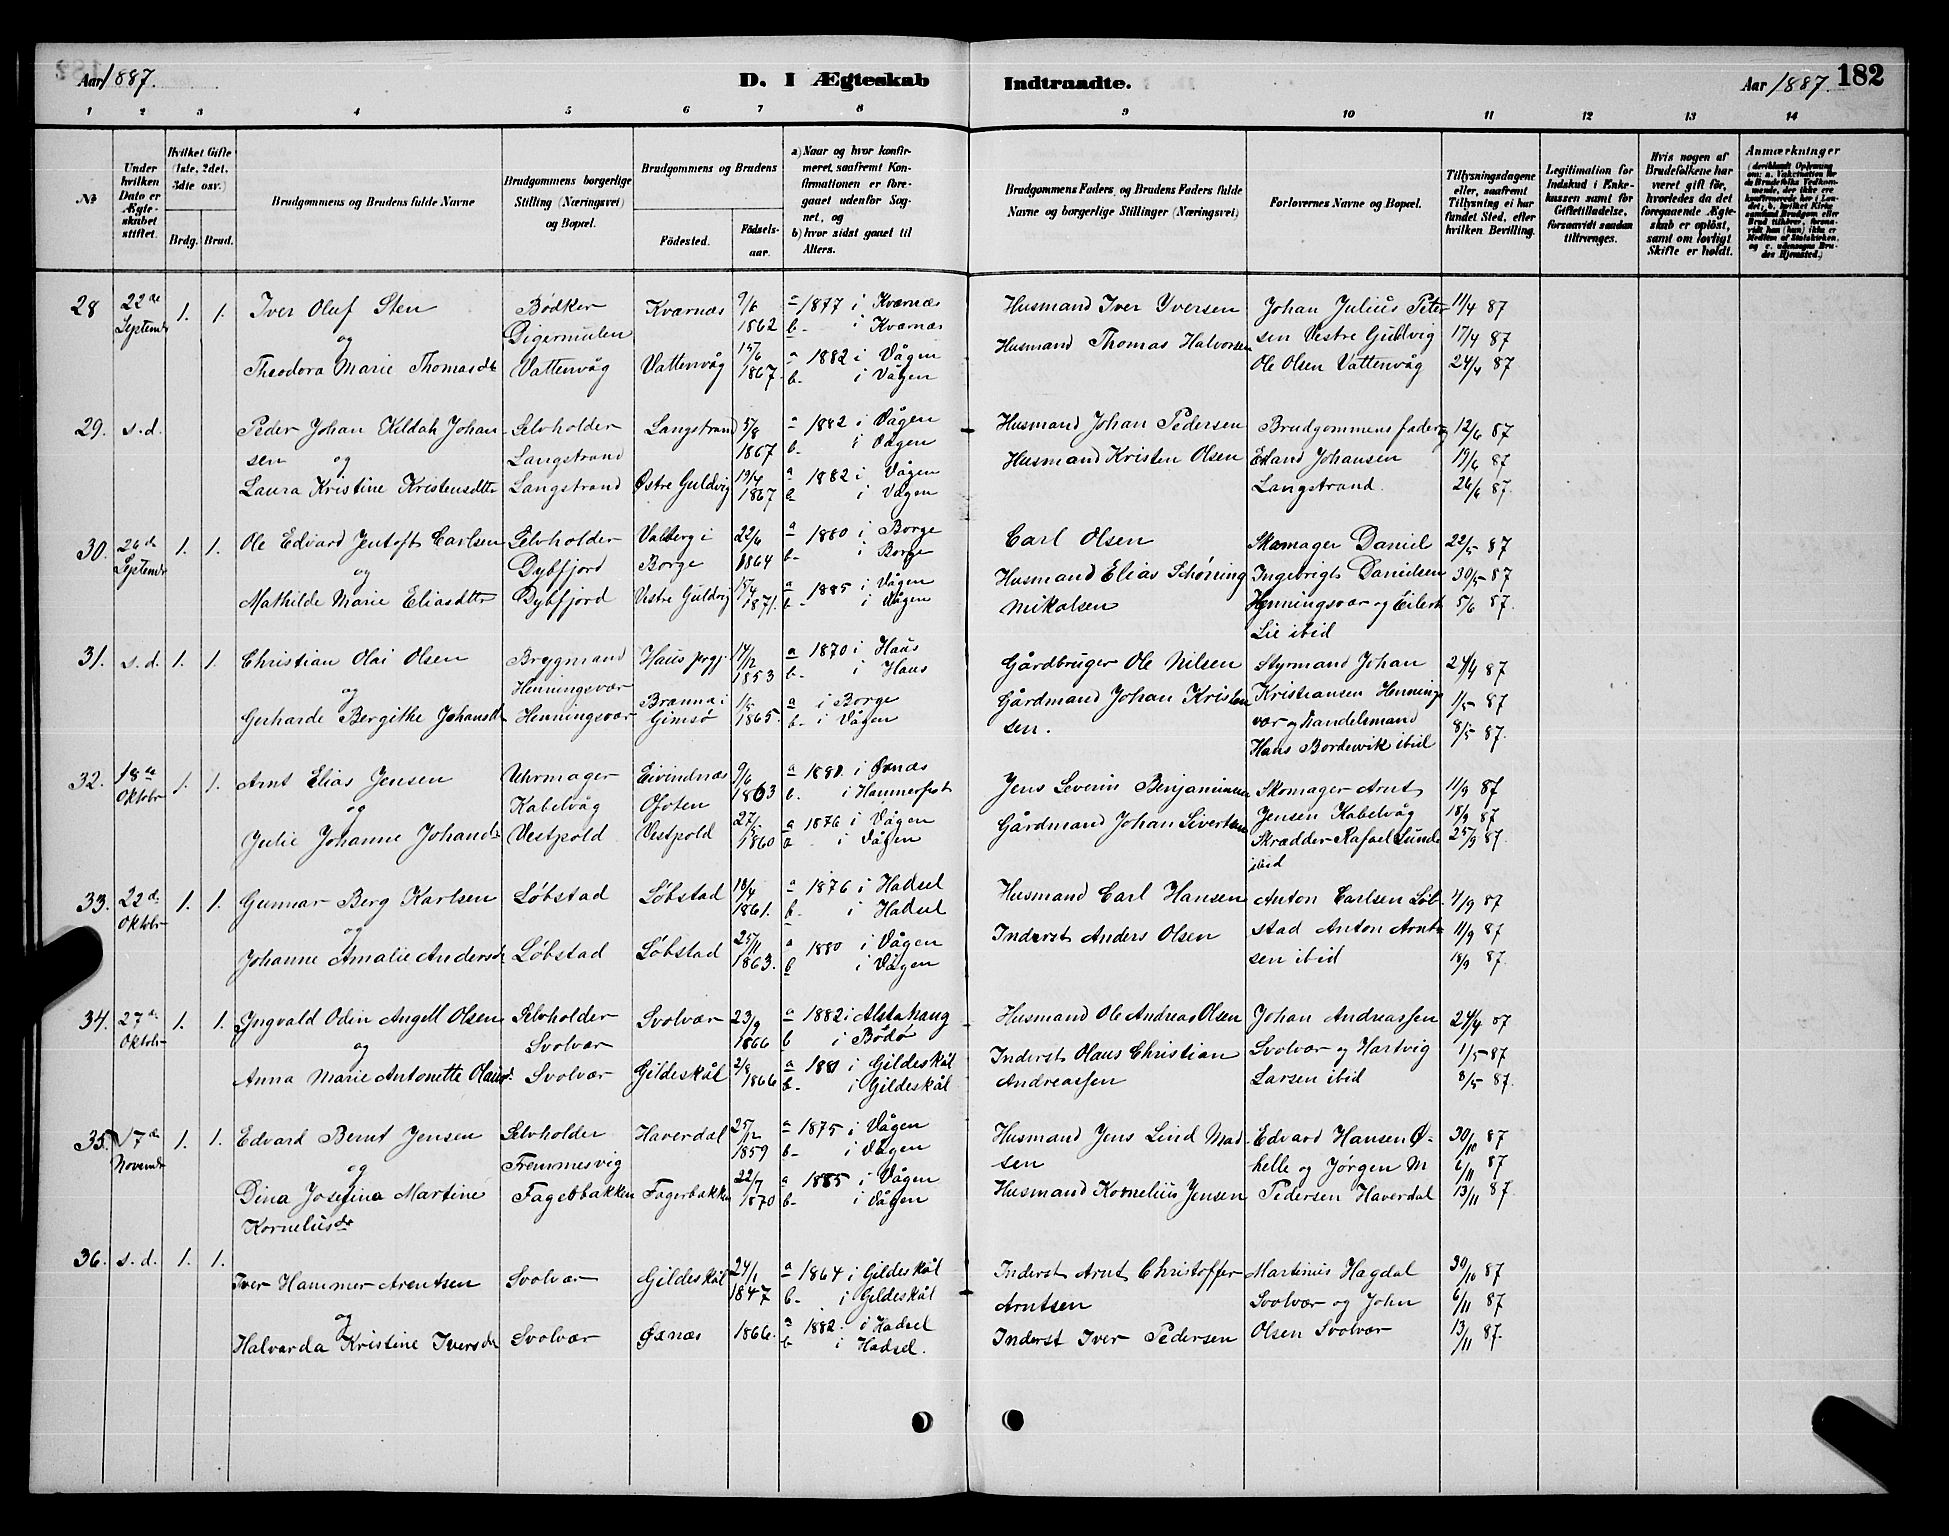 Aar 1887.
D. I Ægteskab Indtraadte.
Aar 1887. 182
1 2 3 4 5 6 7 8 9 10 11 12 13 14
No
Under hvilken Dato er Ægteskabet stiftet.
Hvilket Gifte (1ste, 2det, 3die osv.)
Brdg. Brud.
Brudgommens og Brudens fulde Navne
Brudgommens borgerlige Stilling (Næringsvei) og Bopæl.
Brudgommens og Brudens
Födested.
Födselsaar.
a) Naar og hvor konfirmeret, saafremt Konfirmationen er foregaaet udenfor Sognet, og
b) hvor sidst gaaet til Alters.
Brudgommens Faders, og Brudens Faders fulde Navne og borgerlige Stillinger (Næringsvei)
Forlovernes Navne og Bopæl.
Tillysningsdagene eller, saafremt Tillysning ei har fundet Sted, efter hvilken Bevilling.
Legitimation for Indskud i Enkekassen samt for Giftetilladelse, forsaavidt saadan tiltrænges.
Hvis nogen af Brudefolkene har været gift för, hvorledes da det foregaaende Ægteskab er oplöst, samt om lovligt Skifte er holdt.
Anmærkninger
28 22de Septembr 1. 1. Iver Oluf Sten Bødker Kværnæs 9/6 a 1877 i Kværnæs Husmand Iver Yversen Johan Julius Peter 11/4 87
og Digermulen 1862 b- i Kværnæs sen Vestre Guldvig 17/4 87
Theodora Marie Thomasdt Vattenvåg Vattenvåg 15/6 1867. a 1882 i Vågen b- i Vågen Husmand Thomas Halvorsen Ole Olsen Vattenvåg 24/4 87
29. s.d. Peder Johan Kildah Johan Selvholder Langstrand 5/8 a 1882 i Vågen Husmand Johan Pedersen Brudgommens fader og 12/6 87
sen og Langstrand 1867 b- i Vågen Husmand Kristen Olsen Erland Johansen 19/6 87
Laura Kristine Kristensdtr Langstrand Østre Guldvig 19/4 1867 a 1882 i Vågen i Vågen Langstrand. 26/6 87.
30. 26d Septembr 1. 1. Ole Edvard Jentoft Carlsen Selvholder Valberg i 22/6 a 1880 i Borge Carl Olsen Skomager Daniel 22/5 87
og Dybfjord Borge 1864 b- i Borge Husmand Elias Schøning Ingebrigt Danielsen 30/5 87
Mathilde Marie Eliasdtr Dybfjord Vestre Guldvig 15/4 1871. a 1885 i Vågen b- i Vågen Nikolsen Henningsvær og Eilert 5/6 87.
Lie ibid
31. s.d. 1. 1. Christian Olai Olsen Brygmand Haus prgj. 14/12 a 1870 i Haus Gårdbruger Ole Nilsen Styrmand Johan 24/4 87
og Henningsvær 1853 b- i Haus Gårdmand Johan Kristen Kristiansen Hennings 1/5 87
Gerharde Bergithe Johansdt Henningsvær Brænna i Gimsø 1/5 1865. a i Borge b- i Vågen sen. vær og Handelsmand 8/5 87.
Hans Bordewik ibid
32. 18de Oktobr 1. 1. Arnt Elias Jensen Uhrmager Eivindnæs 9/6 a 1880. i Øxnæs Jens Severin Benjaminsen Skomager Arnt 11/9 87
og Kabelvåg Ofoten 1863 b. i Hammerfest Jensen Kabelvåg 18/9 87
Julie Johanne Johansd Vestpold Vestpold 27/5 1860 a 1876 i Vågen i Vågen Gårdmand Johan Sivertsen Skrædder Rafael Lunde 25/9 87.
ibid
33. 22d Oktobr 1. 1. Gunnar Berg Karlsen Løbstad Løbstad 18/4 1861. a 1876 i Hadsel b- i Hadsel Husmand Carl Hansen Anton Carlsen Løb- 4/9 87
og stad Anton Arnt- 11/9 87
Johanne Amalie Andersd Løbstad Løbstad 25/11 1863. a 1880 i Vågen b i Vågen Inderst Anders Olsen sen ibid 18/9 87.
34. 27de Oktobr 1. 1. Yngvald Odin Angell Olsen Selvholder Svolvær 23/9 a 1882 i Alstahaug Husmand Ole Andreas Olsen Johan Andreassen 24/4 87
og Svolvær 1866 b i Bodø Inderst Olaus Christian Svolvær og Hartvig 1/5 87
Anna Marie Antonette Olausd. Svolvær Gildeskål 2/8 1866 a 1881 i Gildeskål b- i Gildeskål Andreassen Larsen ibid 8/5 87.
35. 17de Novembr 1. 1. Edvard Bernt Jensen Selvholder Haverdal 25/12 a 1875 i Vågen Husmand Jens Lind Mad- Edvard Hansen Ø- 30/10 87
og Fremmesvig 1859 b- i Vågen sen helle og Jørgen M 6/11 87
Dina Josefina Martine Fagerbakken Fagerbakken 22/7 1870 a 1885 i Vågen b- i Vågen Husmand Kornelius Jensen Pedersen Haverdal 13/11 87.
Korneliusdr
36. s.d. 1. 1. Iver Hammer Arentsen Svolvær Gildeskål 24/1 1847 a 1864 i Gildeskål b- i Gildeskål Inderst Arnt Christoffer Martinus Hagdal 30/10 87
og Arntsen Svolvær og John 6/11 87
Halvarda Kristine Iversdr Svolvær Øxnæs 1866. a 1882. i Hadsel b i Hadsel. Inderst Iver Pedersen Olsen Svolvær 13/11 87.